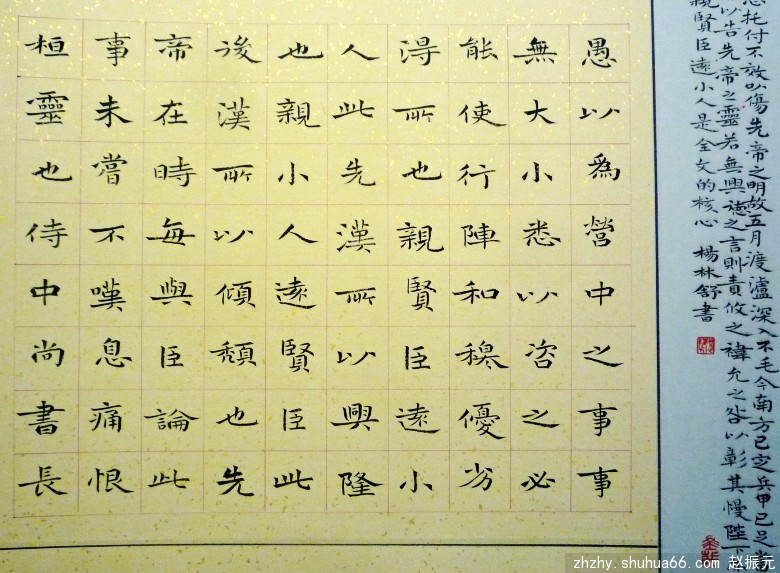 托付不效以傷先帝之明故五月渡瀘深入不毛今南方已定兵甲已足當
以告先帝之靈若無興德之言則責攸之褘允之咎以彰其慢陛下
親賢臣遠小人是全文的核心 楊林舒書
愚以為營中之事事
無大小悉以咨之必
能使行陣和穆優劣
得所也親賢臣遠小
人此先漢所以興隆
也親小人遠賢臣此
後漢所以傾頹也先
帝在時每與臣論此
事未嘗不嘆息痛恨
桓靈也侍中尚書長
zhzhy.shuhua66.com 赵振元